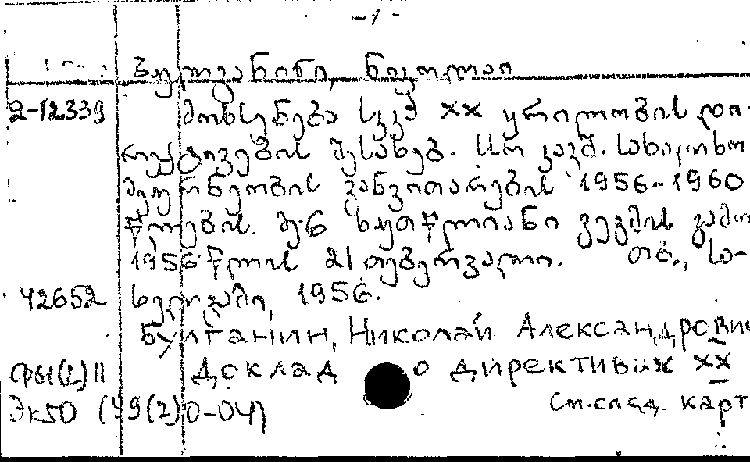 -1-
ბულგანინი, ნიკოლაი
2-12339 მოხსენება სკკპ XX ყრილობის დი-
რექტივების შესახებ. სსრ კავშ. სახალხო
მეურნეობის განვითარების 1956-1960
წლების. მე-6 ხუთწლიანი გეგმის გამო
1956 წლის 21 თებერვალი. თბ., სა-
42652 ხელგამი, 1956.
Булганин, Николай Александрович
ФБ1(2)11 Доклад о директивах XX
ЭК50 (49(2)0-04) См. след. карт